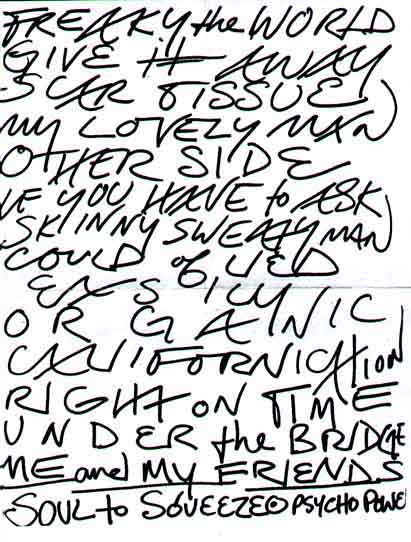 FREAKY the WORLD
GIVE it AWAY
SCAR TISSUE
MY LOVELY MAN
OTHER SIDE
IF YOU HAVE to ASK
SKINNY SWEATY MAN
COULD of LIED
EASILY
ORGANIC
CALIFORNICATION
RIGHT ON TIME
UNDER the BRIDGE
ME and MY FRIENDS
SOUL to SQUEEZE PSYCHO POWE